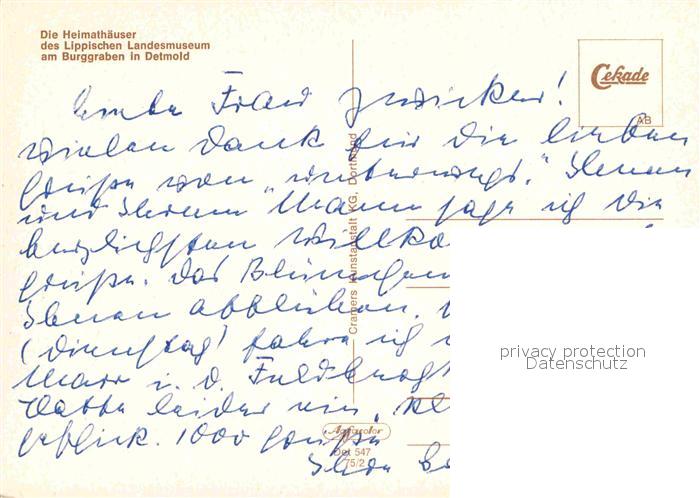 Die Heimathäuser
des Lippischen Landesmuseum
am Burggraben in Detmold
Cekade
AB
Liebe Frau Zwicker!
Vielen Dank für die lieben
Grüße von "unterwegs". Ihnen
und Ihrem Mann sage ich die
herzlichsten Willko
Grüße. Das Blümchen
Ihnen abblühen.
(Dienstag) fahre ich
i. d.
Hatte leider ein
1000 Grüße
Ihre
Cramers Kunstanstalt KG, Dortmund
privacy protection
Datenschutz
Agfacolor
Det 547
75/2